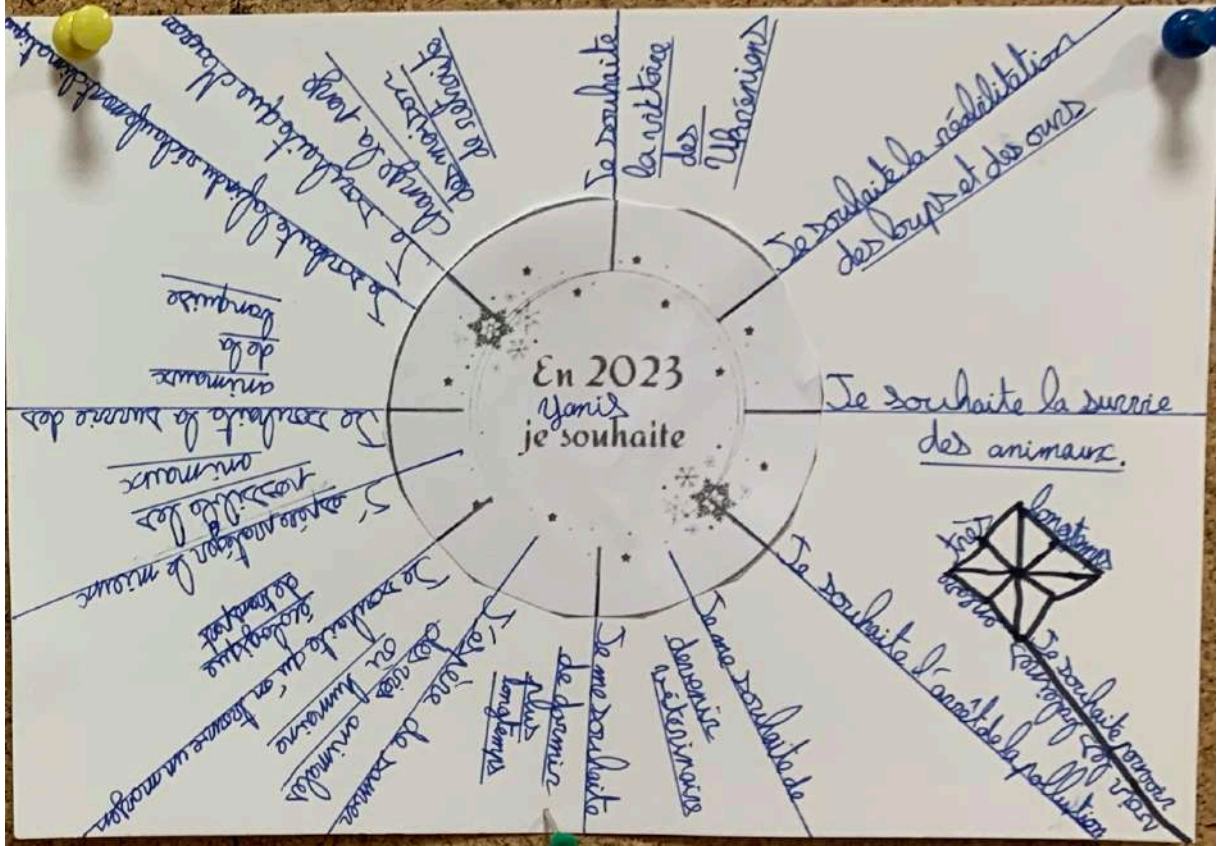 En 2023
Yanis
je souhaite
Je souhaite
la victoire
des
Ukréniens
Je souhaite la réabilitation
des loups et des ours
Je souhaite la survie
des animaux.
très
longtemps
encore
Je souhaite pouvoir
voir
Je souhaite l'arrêt de la pollution
Je me souhaite de
devenir
vétérinaire
Je me souhaite
de dormir
plus
longtemps
J'espère de sauver
des vies
animales
ou humaine
Je souhaite qu'on trouve un moyen
de transport
écologique
J'espère protéger le mieux
possible les
animaux
Je souhaite la survie des
animaux
de la
banquise
Je souhaite la fin du réchaufement climatique
Je souhaite que Macron
change la page
des maison
de retraite